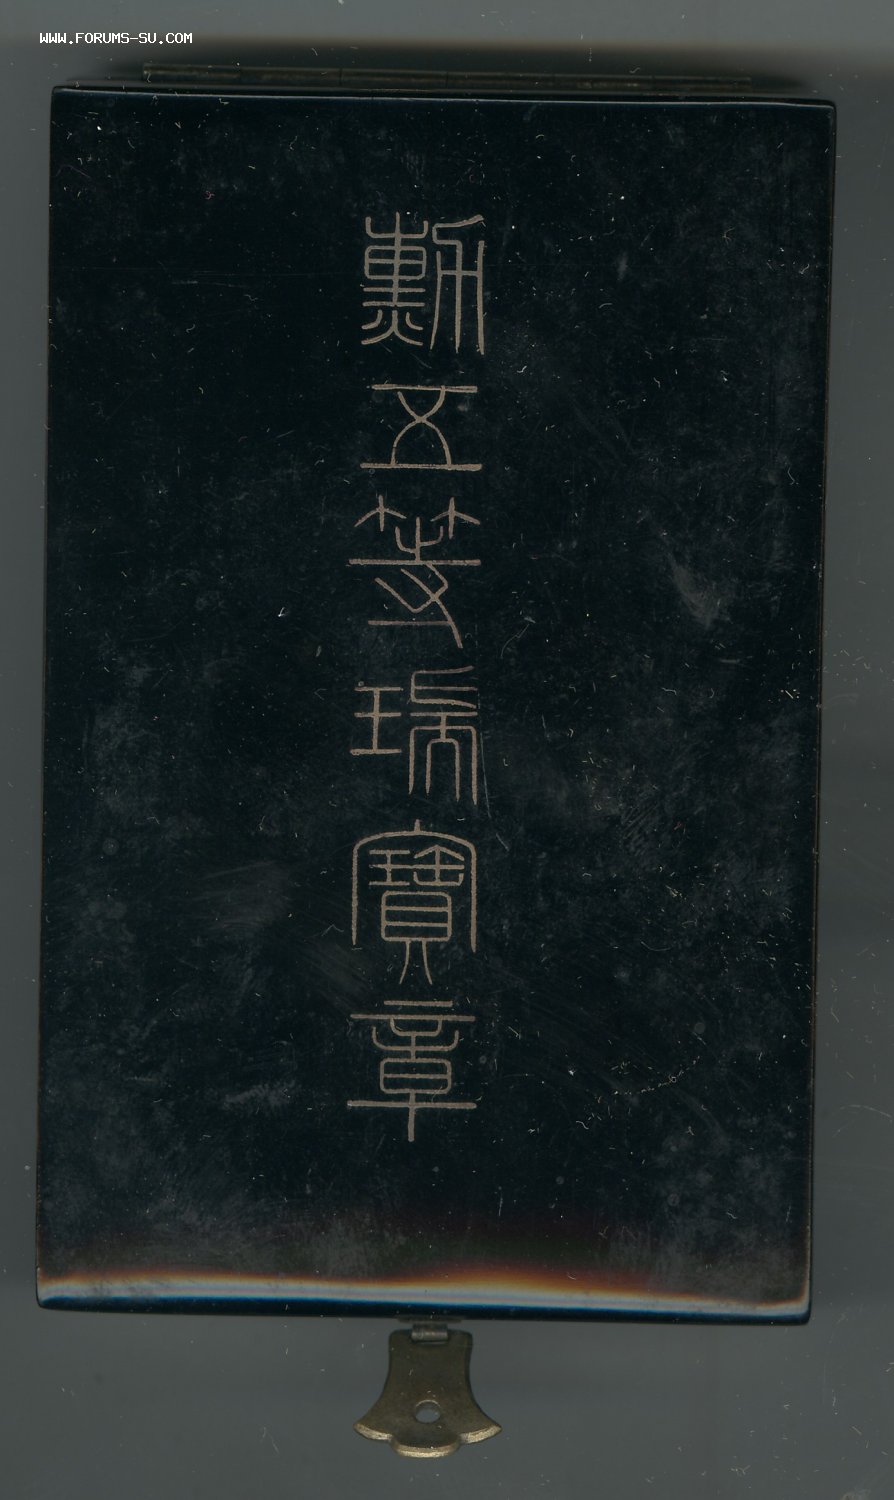 WWW.FORUMS-SU.COM
勲五等瑞寶章